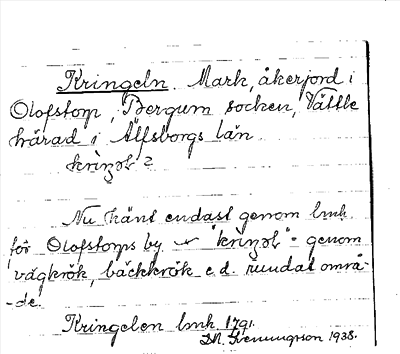 Kringeln. Mark, åkerjord i
Olofstorp, Bergum socken, Vättle
härad i Älfsborgs län.
kriŋəl 2
Nu känt endast genom lmk.
för Olofstorps by. "kriŋəl" = genom
vägkrök, bäckkrök e.d. rundat områ-
-de.
Kringelen lmk. 1791.
Svenungsson 1938.